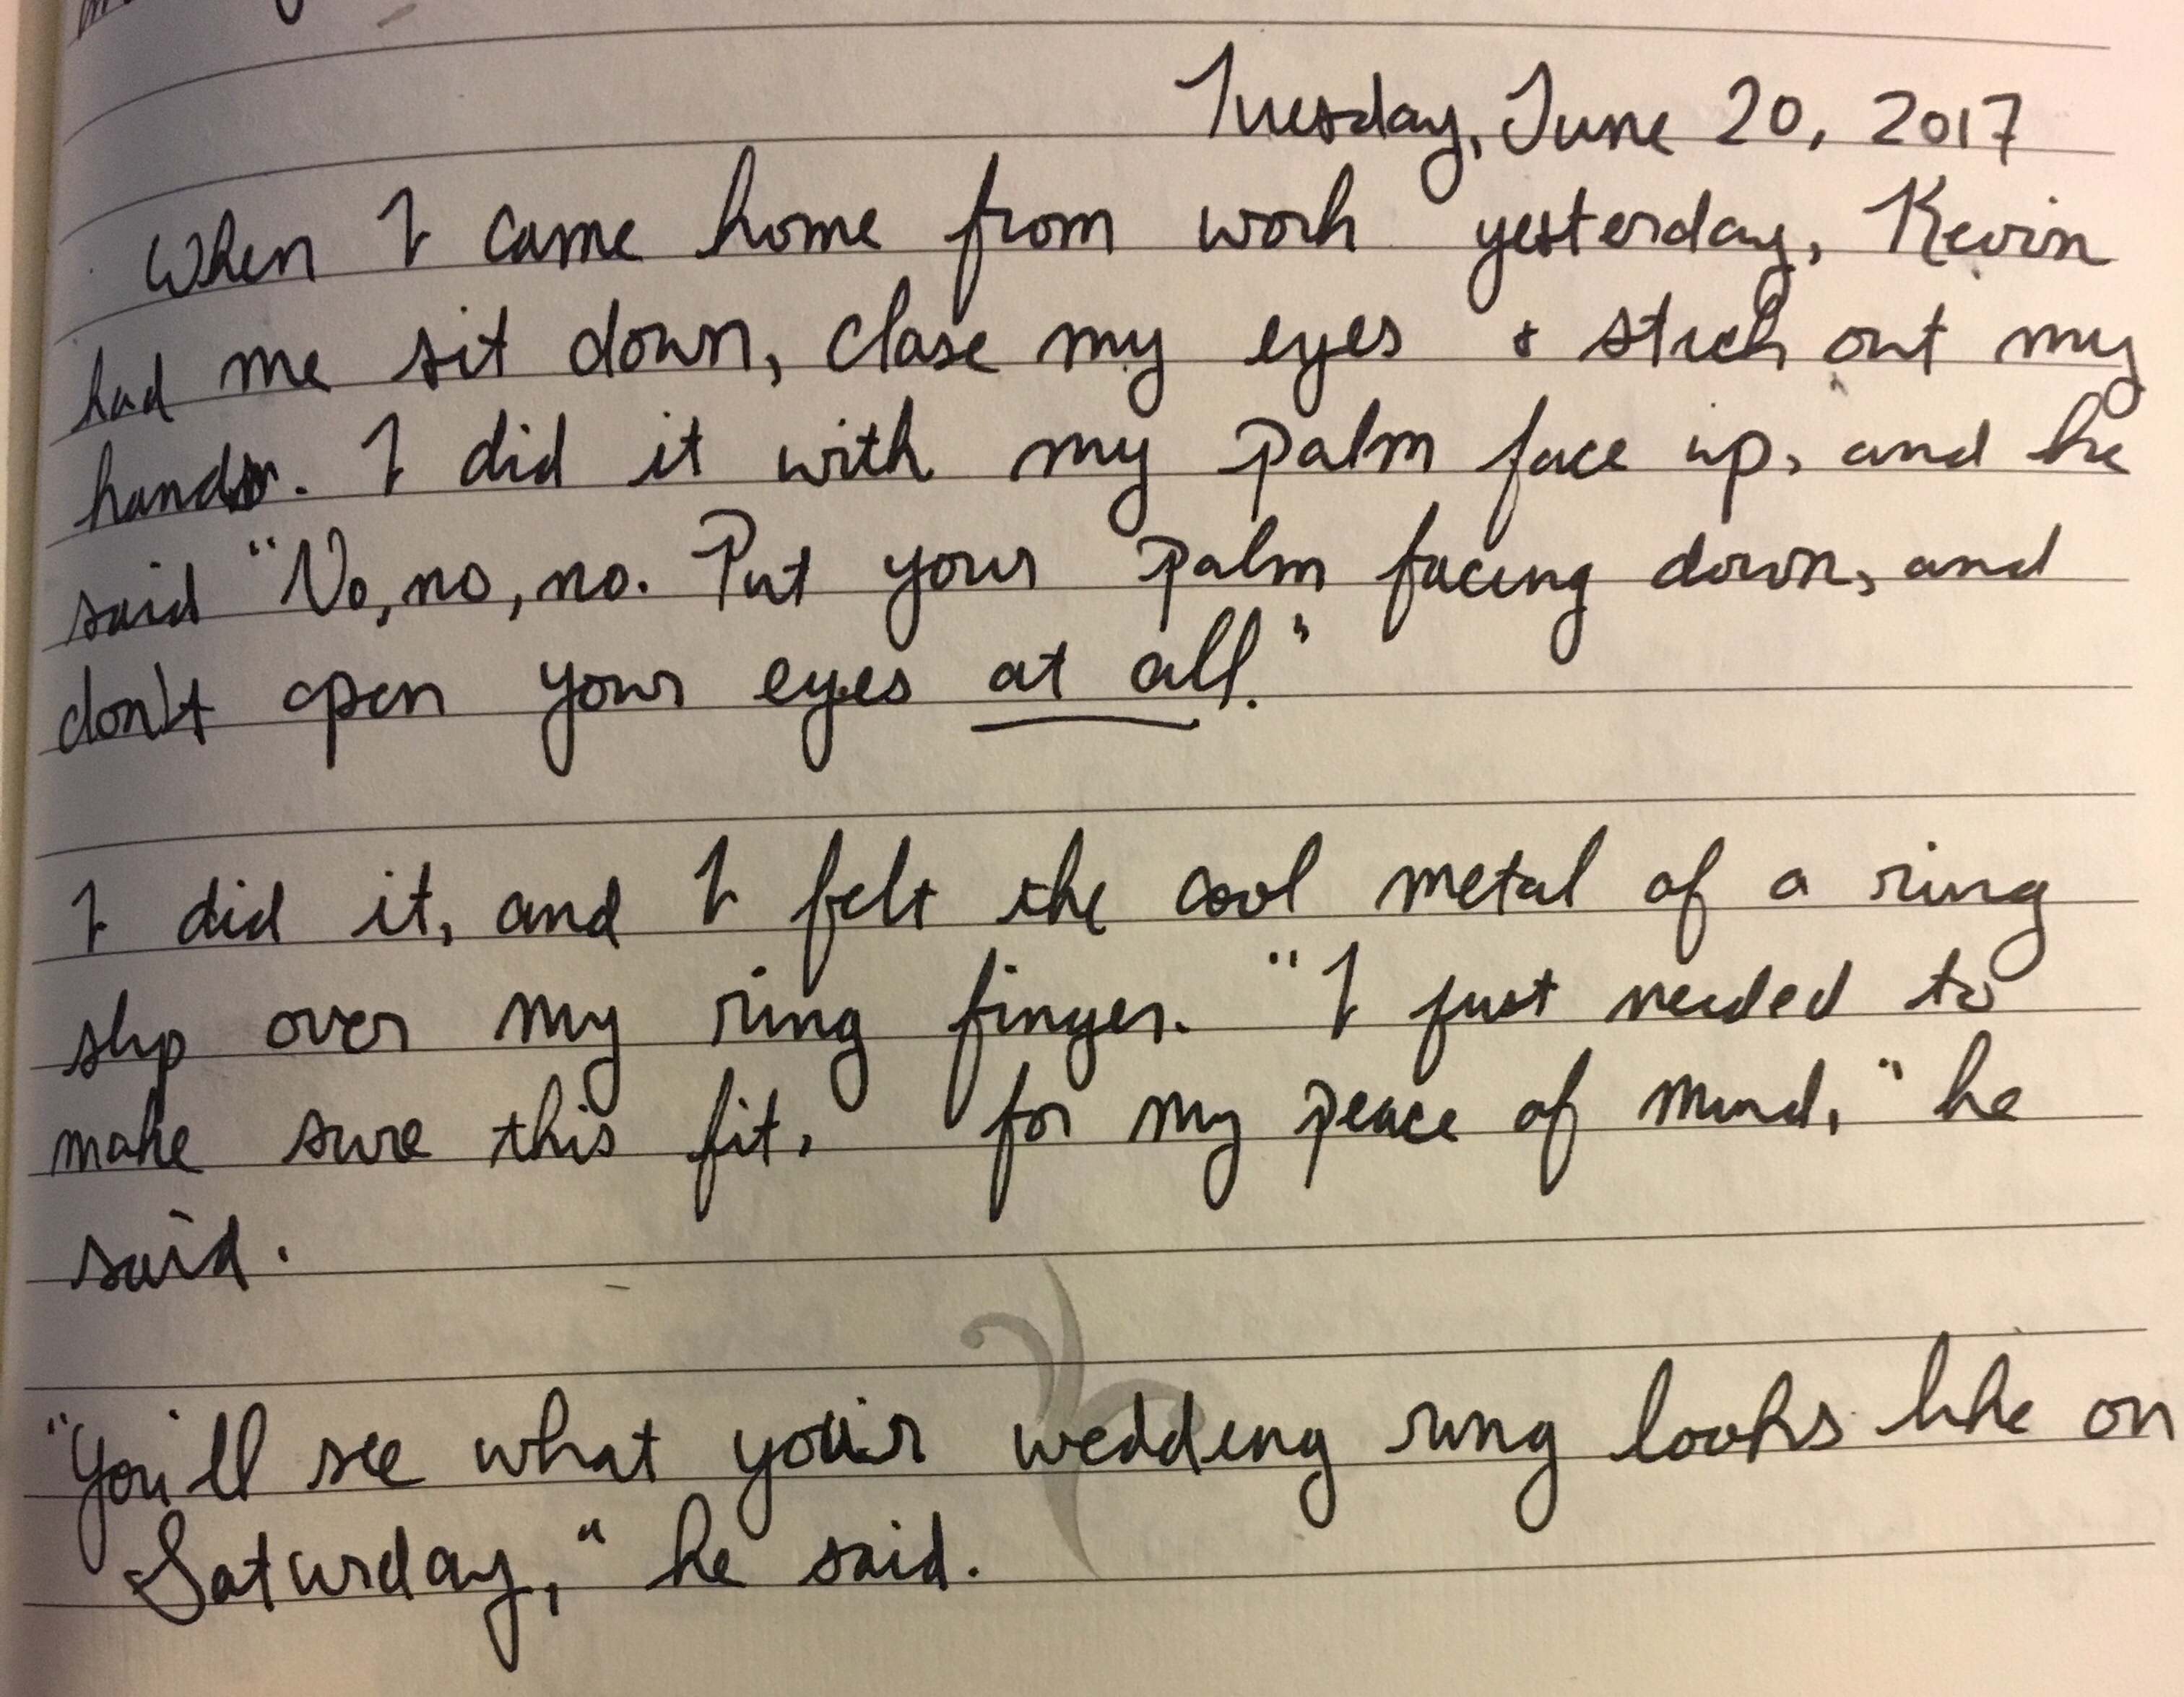 Tuesday, June 20, 2017
When I came home from work yesterday, Kevin
had me sit down, close my eyes + stick out my
hand. I did it with my palm face up, and he
said "No, no, no. Put your palm facing down, and
don't open your eyes at all."
I did it, and I felt the cool metal of a ring
slip over my ring finger. "I just needed to
make sure this fit, for my peace of mind," he
said.
"You'll see what your wedding ring looks like on
Saturday," he said.